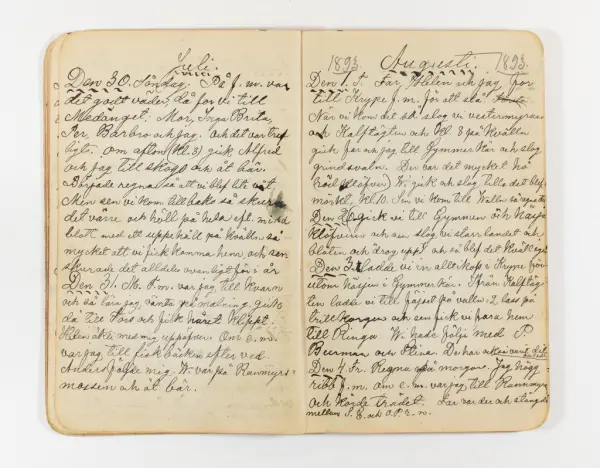 Juli.
Den 30. Söndag. På f.m. var
det godt väder, då for vi till
Medänget. Mor, Inga Brita,
Per, Barbro och jag. och det var tref
ligt. Om aftom (Kl. 3) gick Alfred
och jag till skogs och åt bär.
regna så att vi blef lite våt.
Men sen vi kom tillbaks så skura
det värre och höll på hela efl. m.
blott med ett uppehåll på kvälln så
mycket att vi fick komma hem, och sen
skurade det alldeles ovanligt för i år
Den 31. M. F.m. var jag till kvarn
och så lära jag vänta på malning. gick
då till Tois och fick håret klippt.
Helen åkte med mig uppåför. Om e.m.
var jag till fisk bäcken efter ved
Anders följde mig. Vi var på Ranmyrs
mossen och åt bär.
1893 Augusti. 1893.
Den 1. T. Far, Helen och jag for
till Krype f.m. för att slå
När vi kom dit så slog vi vestermyran
och Kalftägten och Kl. 8 på kvälln
gick far och jag till Gymmerkär och slog
grindsvaln. Der var det mycket hö
Vi gick och slog tills det blef
mörkt, Kl. 10. Sen vi kom till Valln så
Den 2. gick vi till Gymmen och
Klöfveirn och sen slog vi starrlandet och
blöten och drog upp och så blef det kväll
Den 3. ladde vi in alltihop i Krype
utom hässjen i Gymmerkär. Ifrån Kalftäg
ten ladde vi till på valln. 2 lass på
trill korgen och sen fick vi fara hem
till Ringa. Vi hade följe med P.
Burman och Stina. De har och varit dit
Den 4. Fr. Regna på morgon. Jag högg
ribb f.m. Om e.m. var jag till Ranmyra
och körde trädet. Lar var der och stängde
mellan S. E. och O. P. e. m.